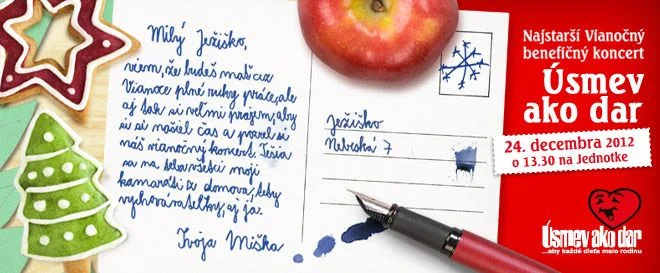 Milý Ježiško,
viem, že budeš mať cez
Vianoce plné ruky práce, ale
aj tak si veľmi prajem, aby
si si našiel čas a pozrel si
náš vianočný koncert. Tešia
sa na teba všetci moji
kamaráti z domova, tety
vychovávateľky, aj ja.
Tvoja Miška
Ježiško
Nebeská 7
Najstarší Vianočný
benefičný koncert
Úsmev
ako dar
24. decembra 2012
o 13.30 na Jednotke
Úsmev ako dar
...aby každé dieťa malo rodinu